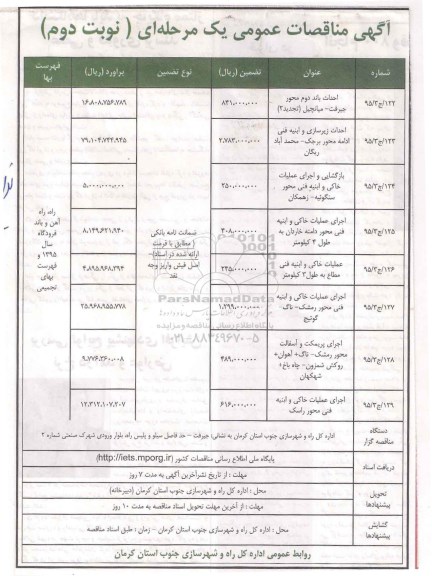 آگهی مناقصات عمومی یک مرحله‌ای ( نوبت دوم)
شماره عنوان تضمین (ریال) نوع تضمین برآورد (ریال) فهرست بها
۹۵/۳/ج/۱۲۲ احداث باند دوم محور جیرفت- میانچیل (تجدید۲) ۸۳۱،۰۰۰،۰۰۰ ۱۶،۸۰۸،۷۵۶،۷۸۹
۹۵/۳/ج/۱۲۳ احداث زیرسازی و ابنیه فنی ادامه محور برجک- محمد آباد ریگان ۲،۷۸۳،۰۰۰،۰۰۰ ۷۹،۱۰۴،۷۴۳,۹۲۵
۹۵/۳/ج/۱۲۴ بازگشایی و اجرای عملیات خاکی و ابنیه فنی محور سنگوئیه- زهمکان ۲۵۰،۰۰۰،۰۰۰ ۵،۰۰۰،۰۰۰،۰۰۰
۹۵/۳/ج/۱۲۵ اجرای عملیات خاکی و ابنیه فنی محور دامنه خاردان به طول ۴ کیلومتر ۴۰۸،۰۰۰،۰۰۰ ۸،۱۴۹،۶۲۱،۹۴۰
۹۵/۳/ج/۱۲۶ عملیات خاکی و ابنیه فنی مطاع به طول۳ کیلومتر ۲۴۵،۰۰۰،۰۰۰ ۴،۸۹۵،۹۶۸،۲۹۴
۹۵/۳/ج/۱۲۷ اجرای عملیات خاکی و ابنیه فنی محور رمشک- ناگ گونیچ ۱،۲۹۹،۰۰۰،۰۰۰ ۲۵،۹۶۸،۹۵۵،۷۷۸
۹۵/۳/ج/۱۲۸ اجرای پریمکت و آسفالت محور رمشک- ناگ+ آهوان+ روکش شمزون- چاه باغ+ شهکهان ۴۸۹،۰۰۰،۰۰۰ ۹،۷۷۶،۳۶۰،۰۰۸
۹۵/۳/ج/۱۲۹ اجرای عملیات خاکی و ابنیه فنی محور راسک ۶۱۶،۰۰۰،۰۰۰ ۱۲،۳۱۲،۱۰۷،۲۰۷
ضمانت نامه بانکی
( مطابق با فرمت
ارائه شده در اسناد)-
اصل فیش واریز وجه
نقد
راه، راه
آهن و باند
فرودگاه
سال
۱۳۹۵ و
فهرست
بهای
تجمیعی
ParsNamadData
پایگاه اطلاع رسانی مناقصه و مزایده
۰۲۱-۸۸۳۴۹۶۷۰-۵
دستگاه مناقصه گزار اداره کل راه و شهرسازی جنوب استان کرمان به نشانی: جیرفت – حد فاصل سیلو و پلیس راه، بلوار ورودی شهرک صنعتی شماره ۲
دریافت اسناد پایگاه ملی اطلاع رسانی مناقصات کشور (http://iets.mporg.ir)
مهلت : از تاریخ نشرآخرین آگهی به مدت ۷ روز
تحویل پیشنهادها محل : اداره کل راه و شهرسازی جنوب استان کرمان (دبیرخانه)
مهلت : از آخرین مهلت تحویل اسناد مناقصه به مدت ۱۰ روز
گشایش پیشنهادها محل : اداره کل راه و شهرسازی جنوب استان کرمان – زمان : طبق اسناد مناقصه
روابط عمومی اداره کل راه و شهرسازی جنوب استان کرمان